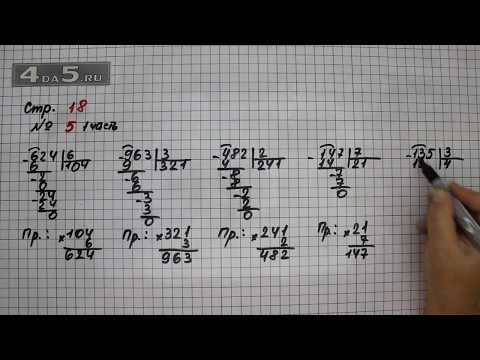 4DA5.RU
Стр. 18
№ 5 1 часть
-624|6
6 |104
-2
0
-24
24
0
-963|3
9 |321
-6
6
-3
3
0
-482|2
4 |241
-8
8
-2
2
0
-147|7
14 |21
-7
7
0
-135|3
Пр.: ×104
6
624
Пр.: ×321
3
963
Пр.: ×241
2
482
Пр.: ×21
7
147